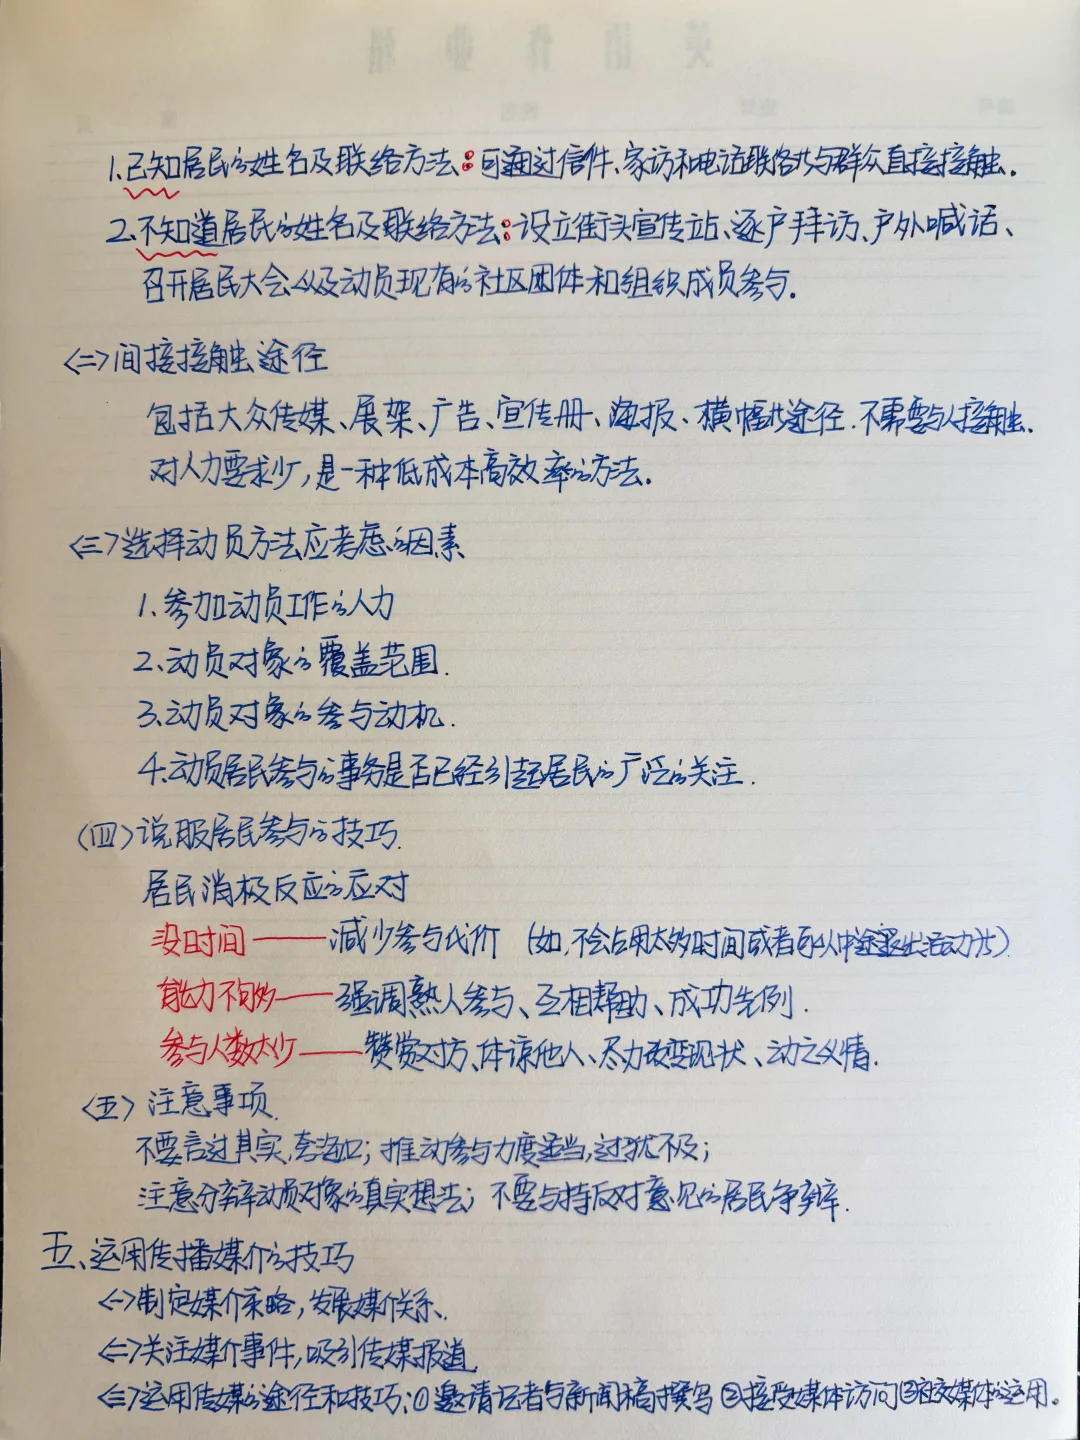 英语作业纸
1.已知居民的姓名及联络方法:可通过信件、家访和电话联络等与群众直接接触.
2.不知道居民的姓名及联络方法:设立街头宣传站、逐户拜访、户外喊话、
召开居民大会以及动员现有的社区团体和组织成员参与.
<二>间接接触途径
包括大众传媒、展架、广告、宣传册、海报、横幅等途径.不需要与人接触.
对人力要求少,是一种低成本高效率的方法.
<三>选择动员方法应考虑的因素
1.参加动员工作的人力
2.动员对象的覆盖范围.
3.动员对象的参与动机.
4.动员居民参与的事务是否已经引起居民的广泛的关注.
(四)说服居民参与的技巧.
居民消极反应的应对
没时间——减少参与代价 (如,不会占用太多时间或者可以中途退出活动等)
能力不够——强调熟人参与、互相帮助、成功先例.
参与人数太少——赞赏对方、体谅他人、尽力改变现状、动之以情.
<五>注意事项.
不要言过其实,夸海口;推动参与力度适当,过犹不及;
注意分辨动员对象的真实想法;不要与持反对意见的居民争辩.
五、运用传播媒介的技巧
<一>制定媒介策略,发展媒介关系.
<二>关注媒介事件,吸引传媒报道
<三>运用传媒的途径和技巧:①邀请记者与新闻稿撰写②接受媒体访问③社交媒体的运用。